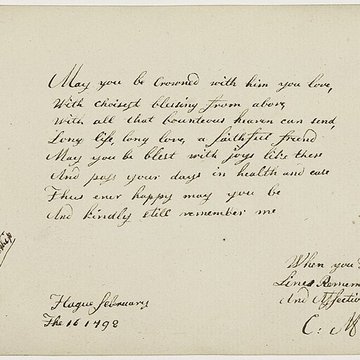 May you be Crowned with him you love,
With choisest blessing from above,
With all that bounteous heaven can send,
Long life, long love, a faithfull friend
May you be blest with joys like these
And pass your days in health and ease
Thus ever happy may you be
And kindly still remember me
When you
Lines Remem
And Affectio
C: M
Hague february
The 16 1792